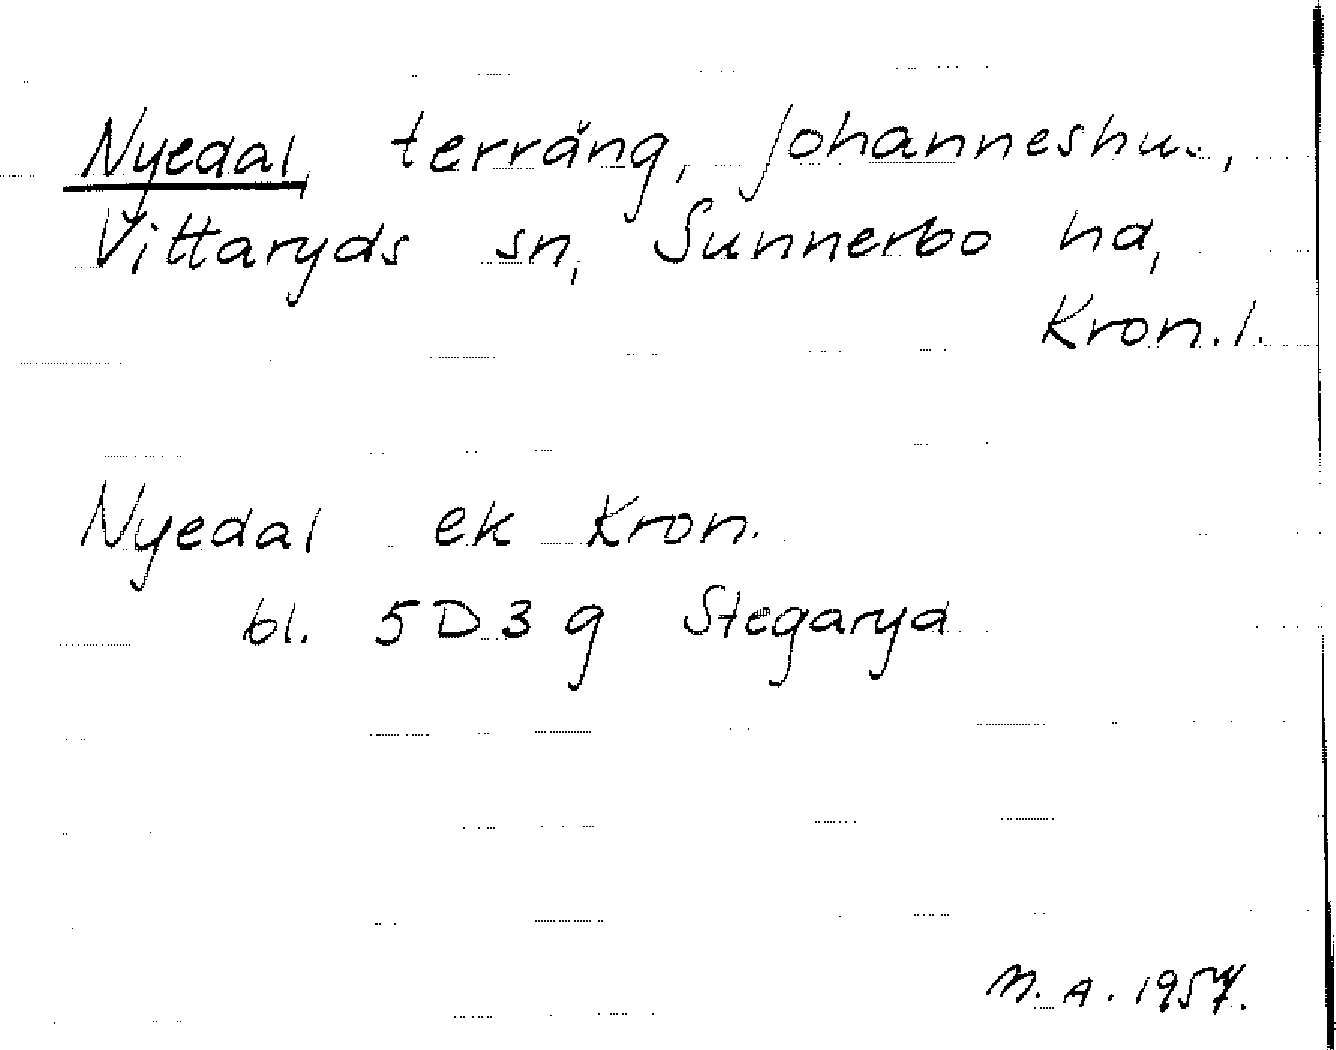 Nyedal terräng, Johanneshus,
Vittaryds sn, Sunnerbo hd,
Kron. l.
Nyedal ek Kron.
bl. 5D3g Stegaryd
M. A. 1957.